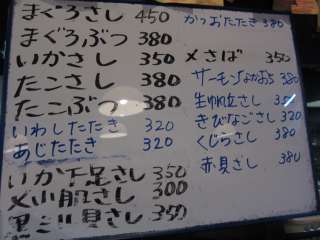 まぐろさし 450
まぐろぶつ 380
いかさし 350
たこさし 380
たこぶつ 380
いわしたたき 320
あじたたき 320
いか下足さし 350
〆小肌さし 300
黒ミル貝さし 350
かつおたたき 380
〆さば 350
サーモン 380
生帆立さし
きびなごさし 320
くじらさし 380
赤貝さし 380